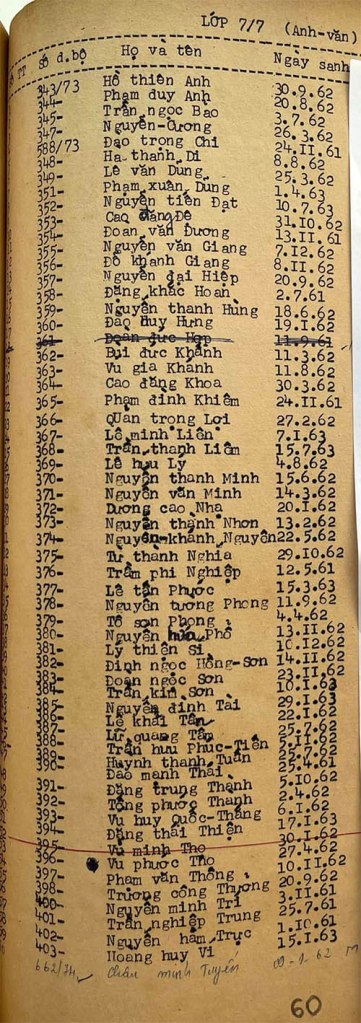 LỚP 7/7 (Anh-văn)
TT Số d.bộ Họ và tên Ngày sanh
343/73 Hồ thiên Anh 30.9.62
344- Phạm duy Anh 20.8.62
345- Trần ngọc Bảo 3.7.62
347- Nguyễn-Cương 26.3.62
588/73 Đạo trọng Chi 24.II.61
348- Hạ thanh Di 8.8.62
349- Lê văn Dũng 25.3.62
351- Phạm xuân Dũng 1.4.63
352- Nguyễn tiến Đạt 10.7.63
353- Cao đăng Đệ 31.10.62
354- Đoàn văn Dương 13.II.61
355- Nguyễn văn Giang 7.12.62
356- Đỗ khanh Giang 8.II.62
357- Nguyễn đại Hiệp 20.9.62
358- Đặng khắc Hoan 2.7.61
359- Nguyễn thanh Hùng 18.6.62
360- Đào huy Hưng 19.I.62
361 Đoàn đức Hợp 11.9.61
362- Bùi đức Khánh 11.3.62
363- Vu gia Khánh 11.8.62
364- Cao đăng Khoa 30.3.62
365- Phạm đình Khiêm 24.II.61
366- Quan trọng Lợi 27.2.62
367- Lê minh Liên 7.I.63
368- Trần thanh Liêm 15.7.63
369- Lê hưu Ly 4.8.62
370- Nguyễn thanh Minh 15.6.62
371- Nguyễn văn Minh 14.3.62
372- Dương cao Nha 20.I.62
373- Nguyễn thanh Nhơn 13.2.62
374- Nguyễn-khánh Nguyên 22.5.62
375- Từ thanh Nghĩa 29.IO.62
376- Trầm phi Nghiệp 12.5.61
377- Lê tấn Phước 15.3.63
378- Nguyễn tương Phong 11.9.62
379- Tô sơn Phong 4.4.62
380- Nguyễn hưu Phố 13.II.62
381- Lý thiên Sĩ 10.12.62
382- Đinh ngọc Hồng-Sơn 14.II.62
383- Đoàn ngọc Sơn 23.II.62
384- Trần kim Sơn 10.I.63
385- Nguyễn đình Tài 29.I.63
386- Lê khải Tân 22.I.62
387- Lữ quang Tấn 25.7.62
388- Trần hưu Phúc-Tiến 5.II.62
389- Huỳnh thanh Tuấn 25.4.61
390- Đào mạnh Thái
391- Đặng trung Thành 5.10.62
392- Tống phước Thạnh 2.4.62
393- Vu huy Quốc-Thắng 6.I.62
394- Đặng thái Thiện 17.I.63
395- Vu minh Thọ 30.I.62
396- Vu phước Thọ 27.4.62
397- Phạm văn Thông 10.II.62
398- Trương công Thượng 20.9.62
400- Nguyễn minh Trí 3.II.61
401- Trần nghiệp Trung 25.7.61
402- Nguyễn hàm Trực 1.10.61
403- Hoàng huy Vi 15.I.63
662/74 Châu minh Tuyền
60